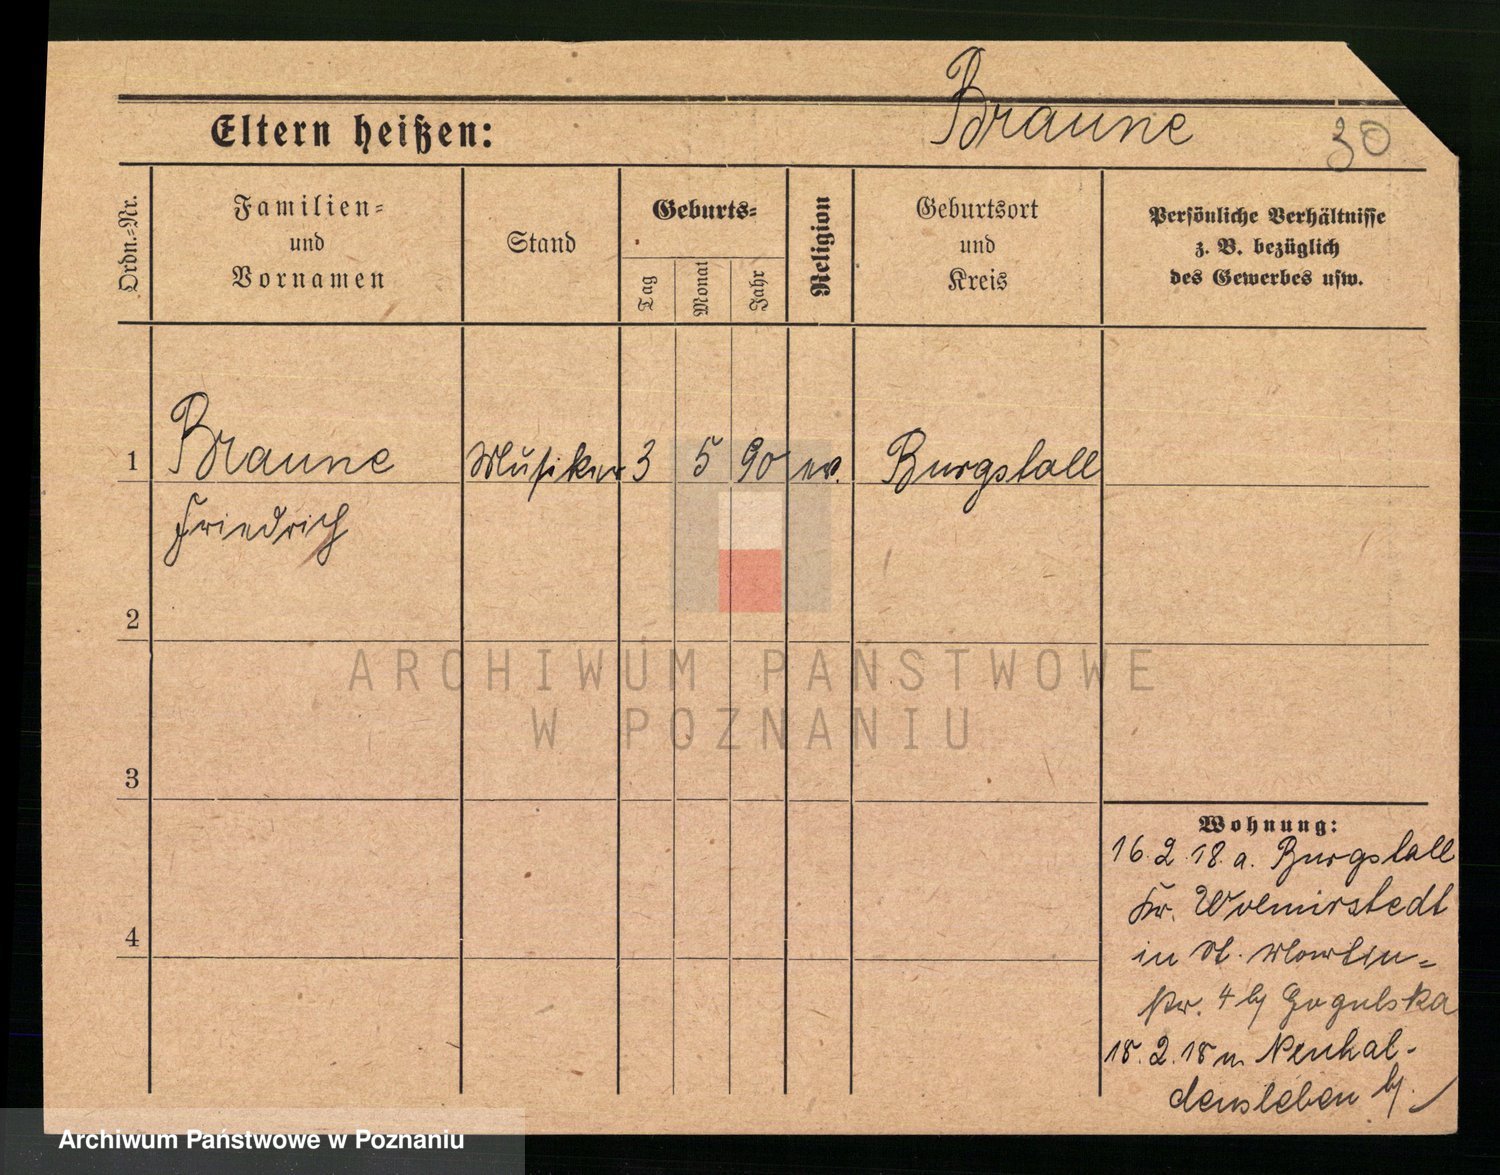 Braune
30
Eltern heißen:
Ordn.=Nr.
Familien=
und
Vornamen
Stand
Geburts=
Tag
Monat
Jahr
Religion
Geburtsort
und
Kreis
Persönliche Verhältnisse
z. B. bezüglich
des Gewerbes usw.
1 Braune Musiker 3 5 90 ev. Burgstall
Friedrich
2
3
4
ARCHIWUM PAŃSTWOWE
W POZNANIU
Wohnung:
16.2.18 a. Burgstall
Kr. Wolmirstedt
in St. Martin=
str. 4 b/ Gogulska
18.2.18 n. Neuhal-
densleben
Archiwum Państwowe w Poznaniu